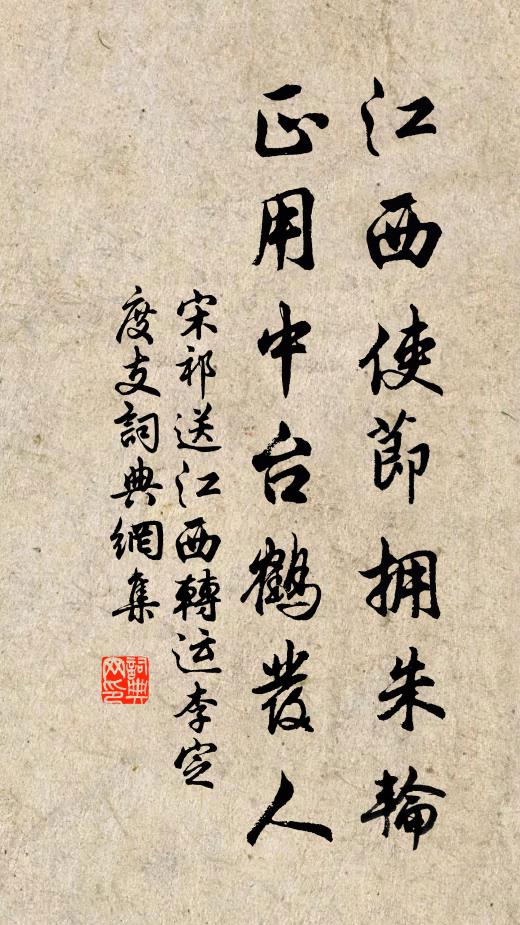 江西使節拥朱輪
正用中台鶴发人
宋祁送江西轉运李定
度支詞典網集
詞典网印